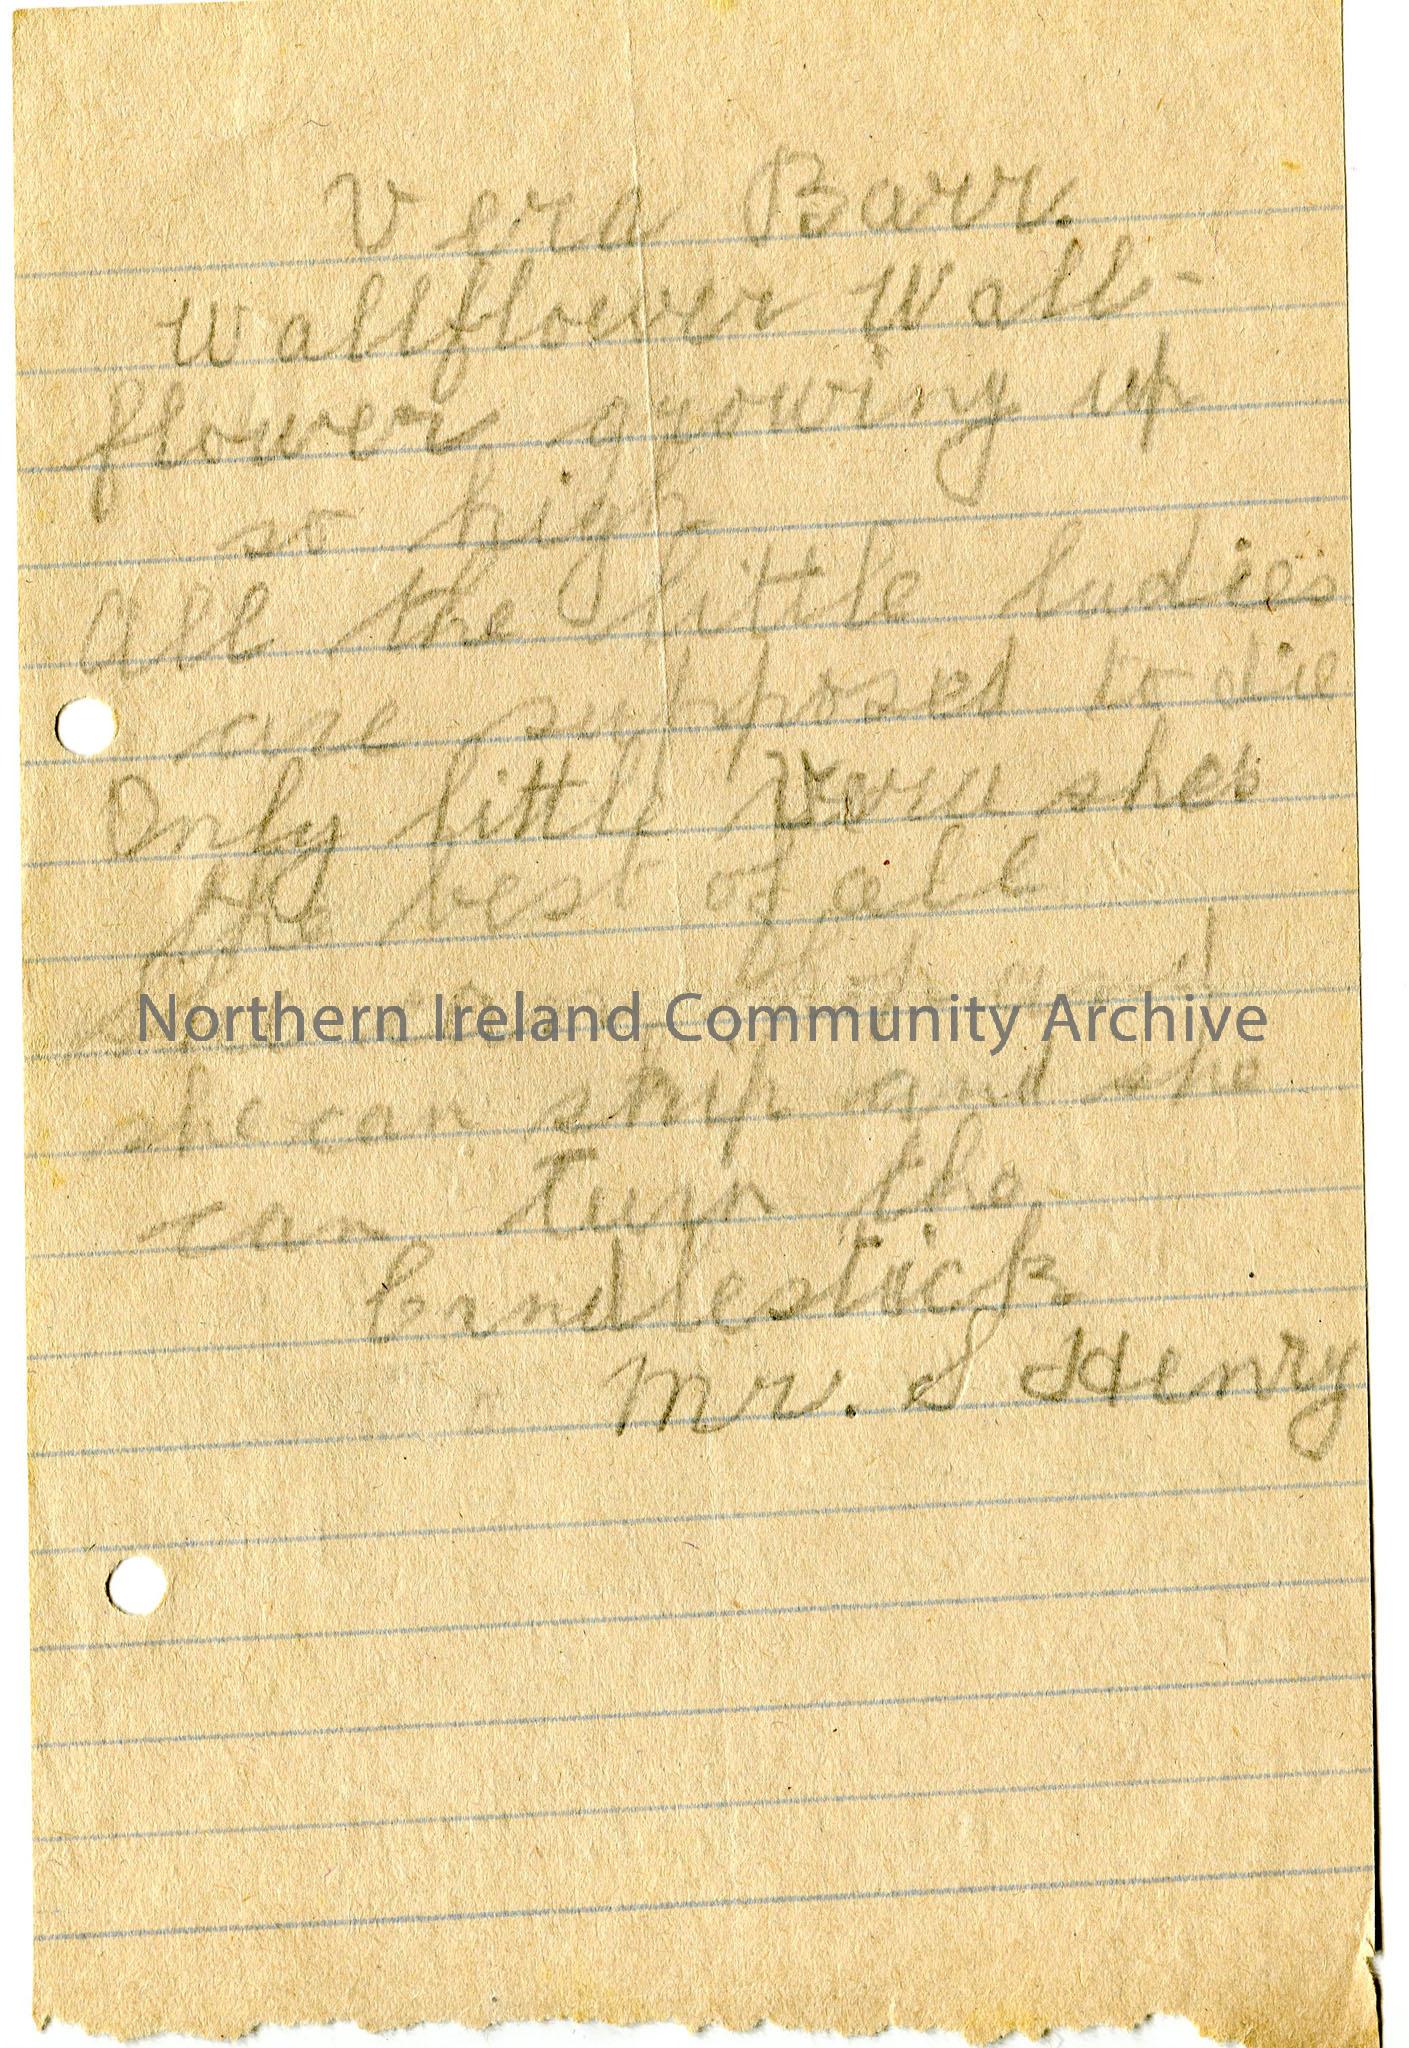 Vera Barr.
Wallflower Wall-
flower growing up
so high
All the little ladies
are supposed to die
Only little Vera shes
the best of all
She can hop and
Northern Ireland Community Archive
she can skip and she
can Turn the
Candlestick
Mr. S Henry